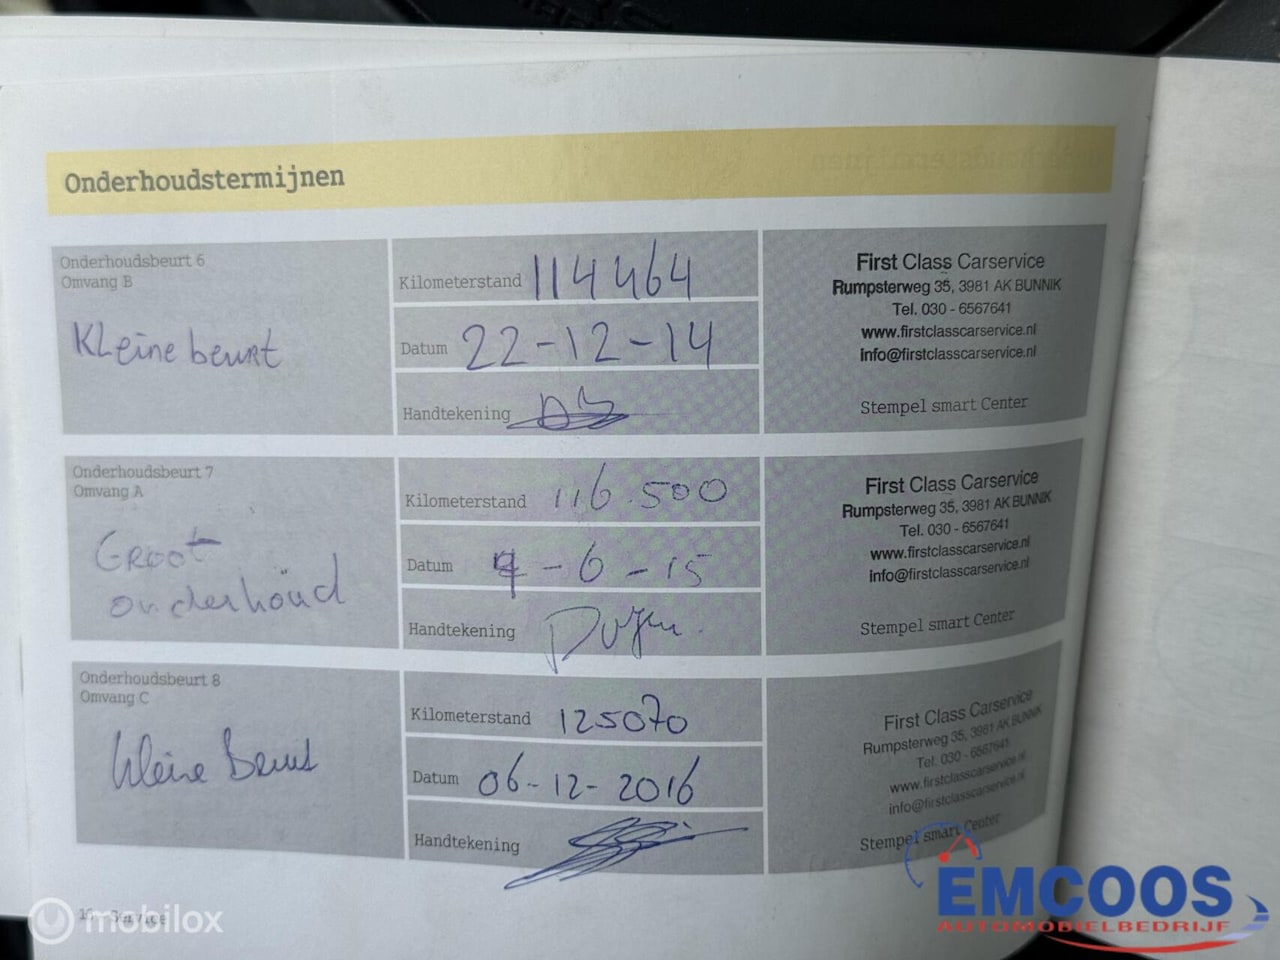 Onderhoudstermijnen
Onderhoudsbeurt 6
Omvang B
Kleine beurt
Kilometerstand 114464
Datum 22-12-14
Handtekening
First Class Carservice
Rumpsterweg 35, 3981 AK BUNNIK
Tel. 030 - 6567641
www.firstclasscarservice.nl
info@firstclasscarservice.nl
Stempel smart Center
Onderhoudsbeurt 7
Omvang A
Groot
onderhoud
Kilometerstand 116.500
Datum 4-6-15
Handtekening
First Class Carservice
Rumpsterweg 35, 3981 AK BUNNIK
Tel. 030 - 6567641
www.firstclasscarservice.nl
info@firstclasscarservice.nl
Stempel smart Center
Onderhoudsbeurt 8
Omvang C
Kleine Beurt
Kilometerstand 125070
Datum 06-12-2016
Handtekening
First Class Carservice
Rumpsterweg 35, 3981 AK BUNNIK
Tel. 030 - 6567641
www.firstclasscarservice.nl
info@firstclasscarservice.nl
Stempel smart Center
Service
mobilox
EMCOOS
AUTOMOBIELBEDRIJF